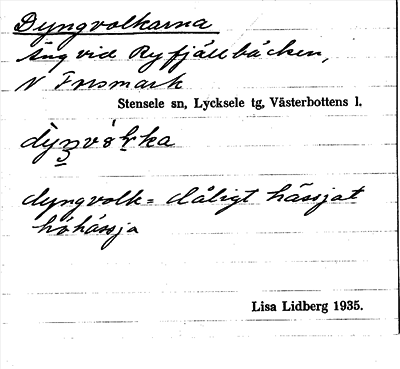 Dyngvolkarna
Äng vid Ryfjällbäcken,
N Forsmark
Stensele sn, Lycksele tg, Västerbottens l.
dyngvolk = dåligt hässjat
höhässja
Lisa Lidberg 1935.